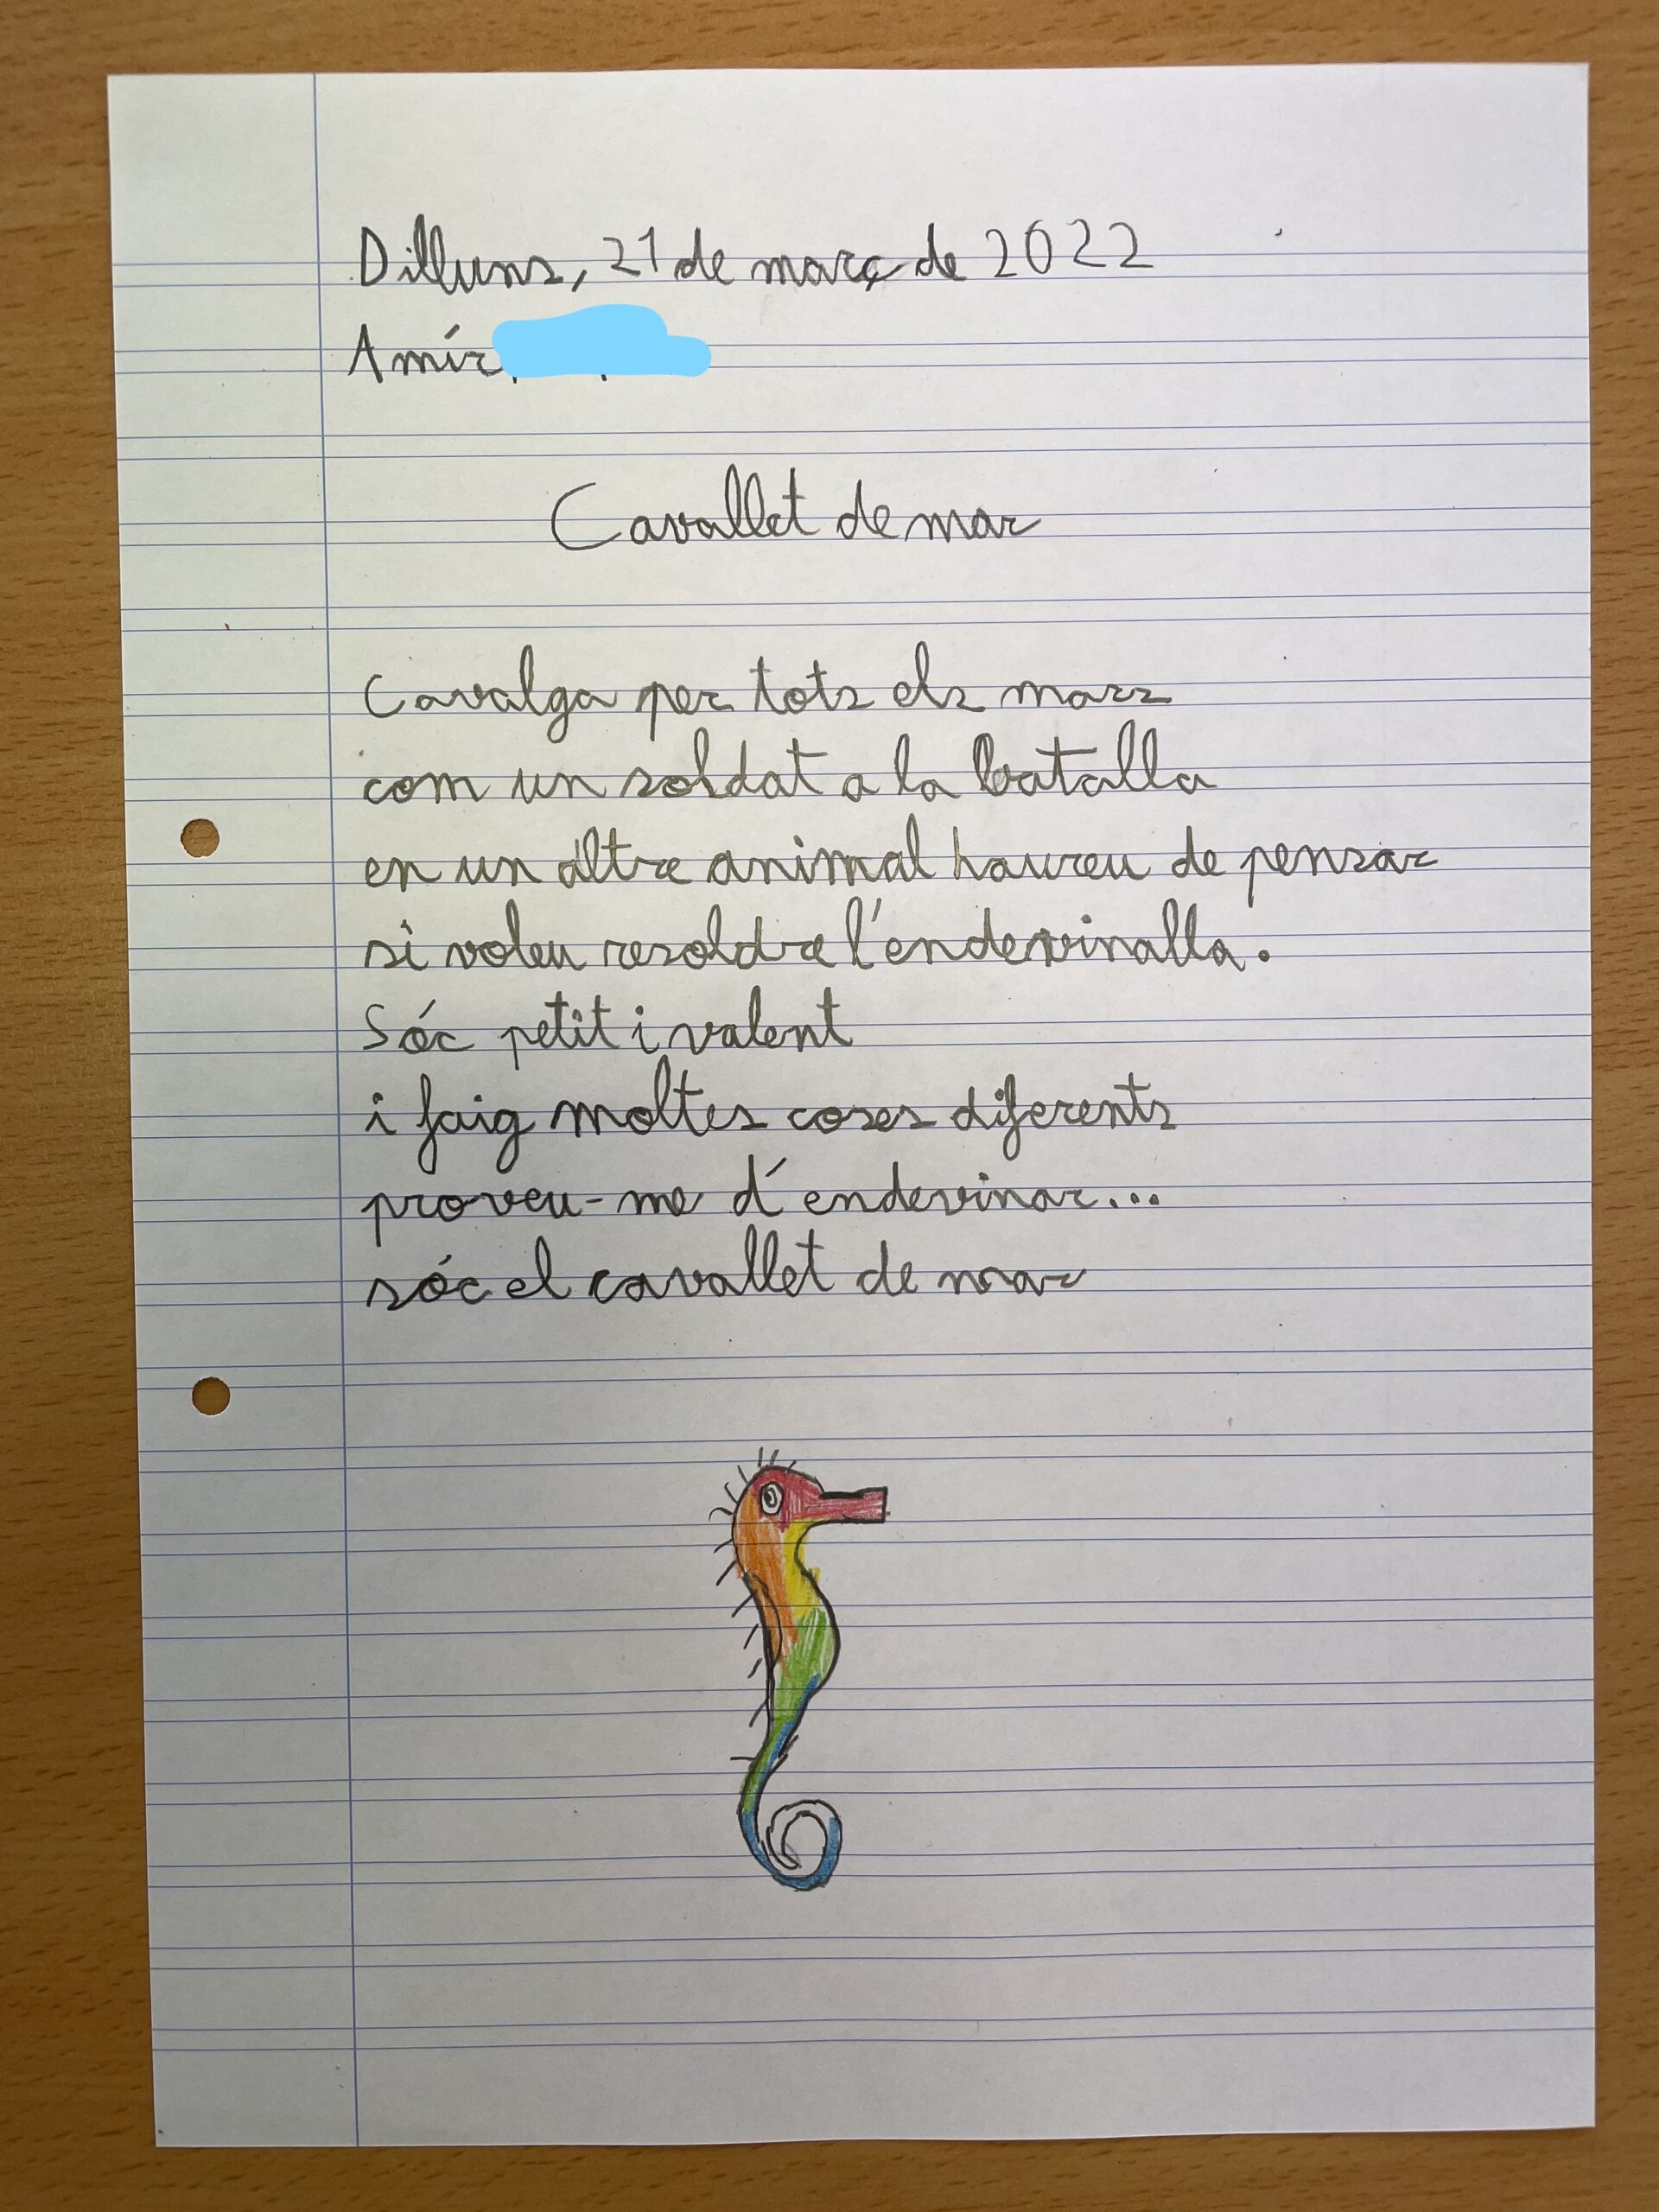 Dilluns, 21 de març de 2022
Amír
Cavallet de mar
Cavalga per tots els mars
com un soldat a la batalla
en un altre animal haureu de pensar
si voleu resoldre l'endevinalla.
Sóc petit i valent
i faig moltes coses diferents
proveu-me d'endevinar...
sóc el cavallet de mar